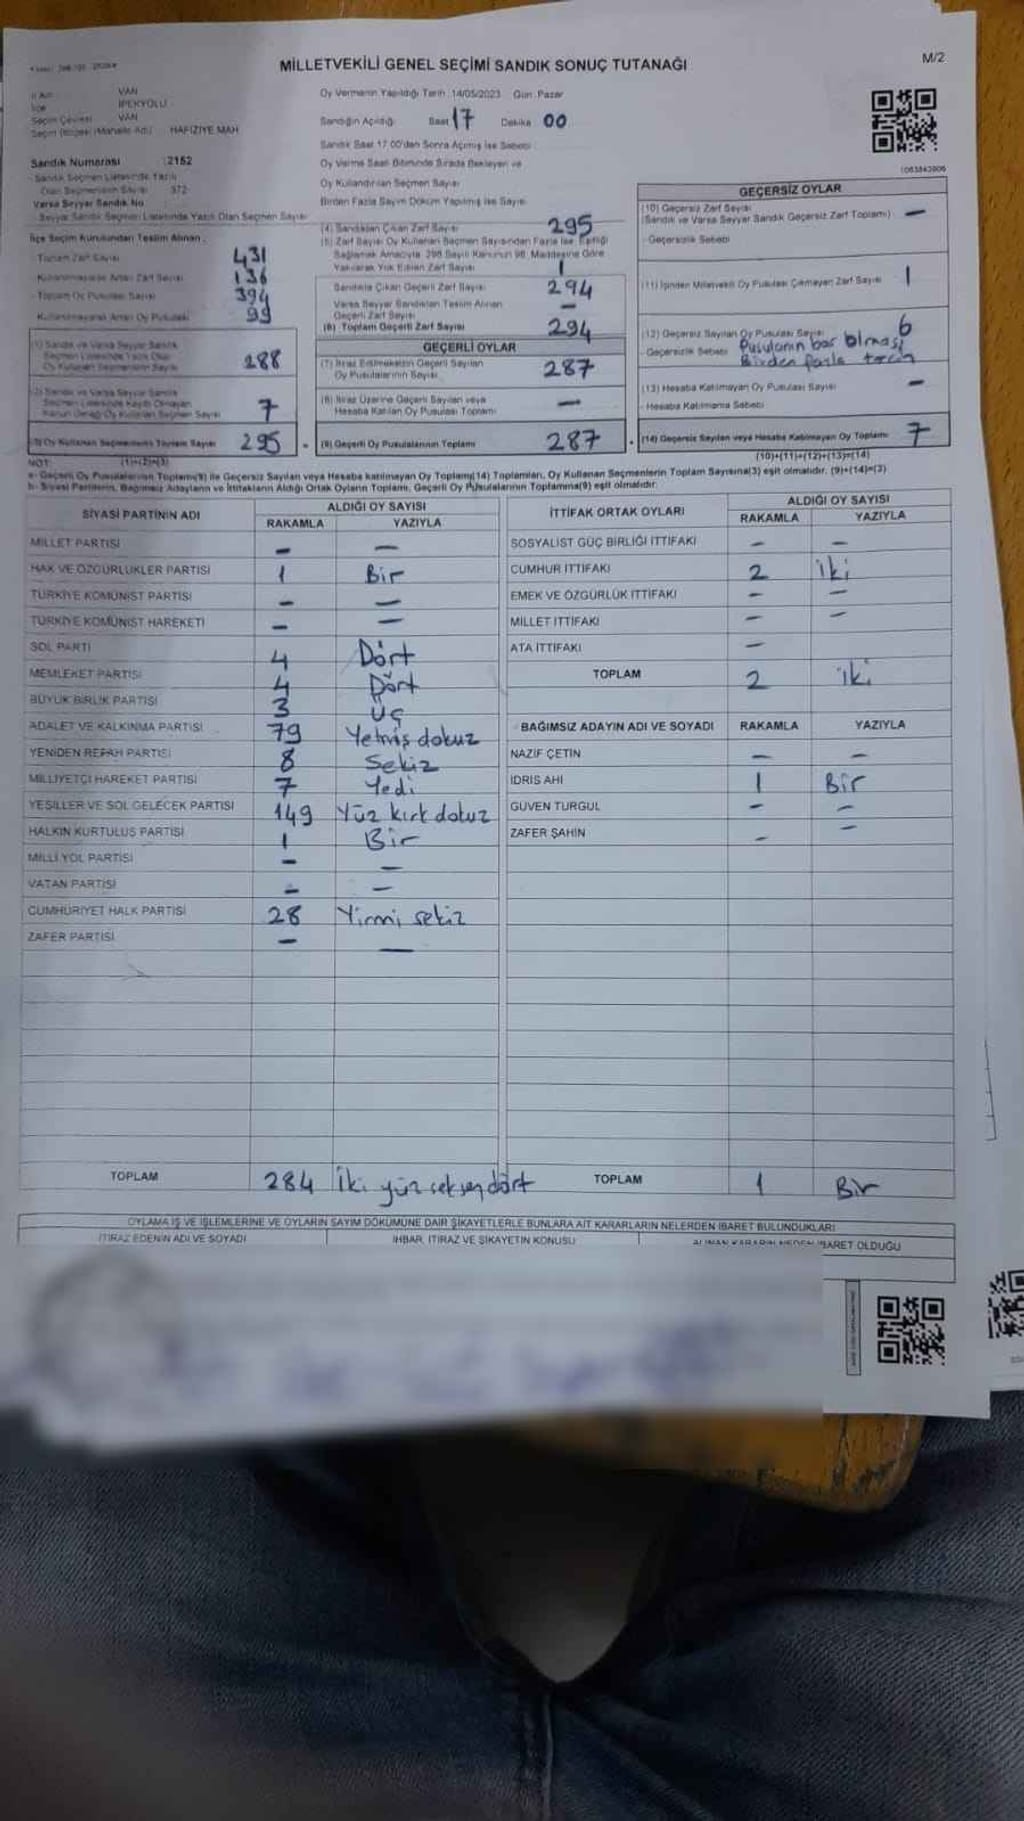 MİLLETVEKİLİ GENEL SEÇİMİ SANDIK SONUÇ TUTANAĞI
M/2
VAN
İPEKYOLU
Seçim Çevresi VAN
HAFIZIYE MAH
Sandık Numarası : 2152
372
Varsa Seyyar Sandık No
Seyyar Sandık Seçmen Listesinde Yazılı Olan Seçmen Sayısı
İlçe Seçim Kurulundan Teslim Alınan :
Toplam Zarf Sayısı 431
Kullanılmayarak Artan Zarf Sayısı 136
Toplam Oy Pusulası Sayısı 394
Kullanılmayarak Artan Oy Pusulası 99
288
7
Oy Kullanan Seçmenlerin Toplam Sayısı 295
(1)+(2)=(3)
Oy Vermenin Yapıldığı Tarih : 14/05/2023 Gün : Pazar
Sandığın Açıldığı Saat 17 Dakika 00
Sandık Saat 17.00'den Sonra Açılmış İse Sebebi
Oy Verme Saati Bitiminde Sırada Bekleyen ve
Oy Kullandırılan Seçmen Sayısı
Birden Fazla Sayım Döküm Yapılmış İse Sayısı
(4) Sandıktan Çıkan Zarf Sayısı 295
(5) Zarf Sayısı Oy Kullanan Seçmen Sayısından Fazla İse, Eşitliği
Sağlamak Amacıyla 298 Sayılı Kanunun 98. Maddesine Göre
Yakılarak Yok Edilen Zarf Sayısı 1
Sandıkta Çıkan Geçerli Zarf Sayısı 294
Varsa Seyyar Sandıktan Teslim Alınan
Geçerli Zarf Sayısı —
(6) Toplam Geçerli Zarf Sayısı 294
GEÇERLİ OYLAR
(7) İtiraz Edilmeksizin Geçerli Sayılan
Oy Pusulalarının Sayısı 287
(8) İtiraz Üzerine Geçerli Sayılan veya
Hesaba Katılan Oy Pusulası Toplamı —
(9) Geçerli Oy Pusulalarının Toplamı 287
1083843906
GEÇERSİZ OYLAR
(10) Geçersiz Zarf Sayısı
(Sandık ve Varsa Seyyar Sandık Geçersiz Zarf Toplamı) —
- Geçersizlik Sebebi
(11) İçinden Milletvekili Oy Pusulası Çıkmayan Zarf Sayısı 1
(12) Geçersiz Sayılan Oy Pusulası Sayısı 6
- Geçersizlik Sebebi Pusulanın boş olması
Birden fazla tercih
(13) Hesaba Katılmayan Oy Pusulası Sayısı —
- Hesaba Katılmama Sebebi
(14) Geçersiz Sayılan veya Hesaba Katılmayan Oy Toplamı 7
(10)+(11)+(12)+(13)=(14)
NOT:
a- Geçerli Oy Pusulalarının Toplamı(9) ile Geçersiz Sayılan veya Hesaba katılmayan Oy Toplamı(14) Toplamları, Oy Kullanan Seçmenlerin Toplam Sayısına(3) eşit olmalıdır. (9)+(14)=(3)
b- Siyasi Partilerin, Bağımsız Adayların ve İttifakların Aldığı Ortak Oyların Toplamı, Geçerli Oy Pusulalarının Toplamına(9) eşit olmalıdır.
SİYASİ PARTİNİN ADI ALDIĞI OY SAYISI
RAKAMLA YAZIYLA
MİLLET PARTİSİ — —
HAK VE ÖZGÜRLÜKLER PARTİSİ 1 Bir
TÜRKİYE KOMÜNİST PARTİSİ — —
TÜRKİYE KOMÜNİST HAREKETİ — —
SOL PARTİ 4 Dört
MEMLEKET PARTİSİ 4 Dört
BÜYÜK BİRLİK PARTİSİ 3 Üç
ADALET VE KALKINMA PARTİSİ 79 Yetmiş dokuz
YENİDEN REFAH PARTİSİ 8 Sekiz
MİLLİYETÇİ HAREKET PARTİSİ 7 Yedi
YEŞİLLER VE SOL GELECEK PARTİSİ 149 Yüz kırk dokuz
HALKIN KURTULUŞ PARTİSİ 1 Bir
MİLLİ YOL PARTİSİ — —
VATAN PARTİSİ — —
CUMHURİYET HALK PARTİSİ 28 Yirmi sekiz
ZAFER PARTİSİ — —
TOPLAM 284 İki yüz seksen dört
İTTİFAK ORTAK OYLARI ALDIĞI OY SAYISI
RAKAMLA YAZIYLA
SOSYALİST GÜÇ BİRLİĞİ İTTİFAKI — —
CUMHUR İTTİFAKI 2 iki
EMEK VE ÖZGÜRLÜK İTTİFAKI — —
MİLLET İTTİFAKI — —
ATA İTTİFAKI —
TOPLAM 2 iki
BAĞIMSIZ ADAYIN ADI VE SOYADI RAKAMLA YAZIYLA
NAZİF ÇETİN — —
İDRİS AHİ 1 Bir
GÜVEN TURGUL — —
ZAFER ŞAHİN — —
TOPLAM 1 Bir
OYLAMA İŞ VE İŞLEMLERİNE VE OYLARIN SAYIM DÖKÜMÜNE DAİR ŞİKAYETLERLE BUNLARA AİT KARARLARIN NELERDEN İBARET BULUNDUKLARI
İTİRAZ EDENİN ADI VE SOYADI İHBAR, İTİRAZ VE ŞİKAYETİN KONUSU ALINAN KARARIN NEDEN İBARET OLDUĞU